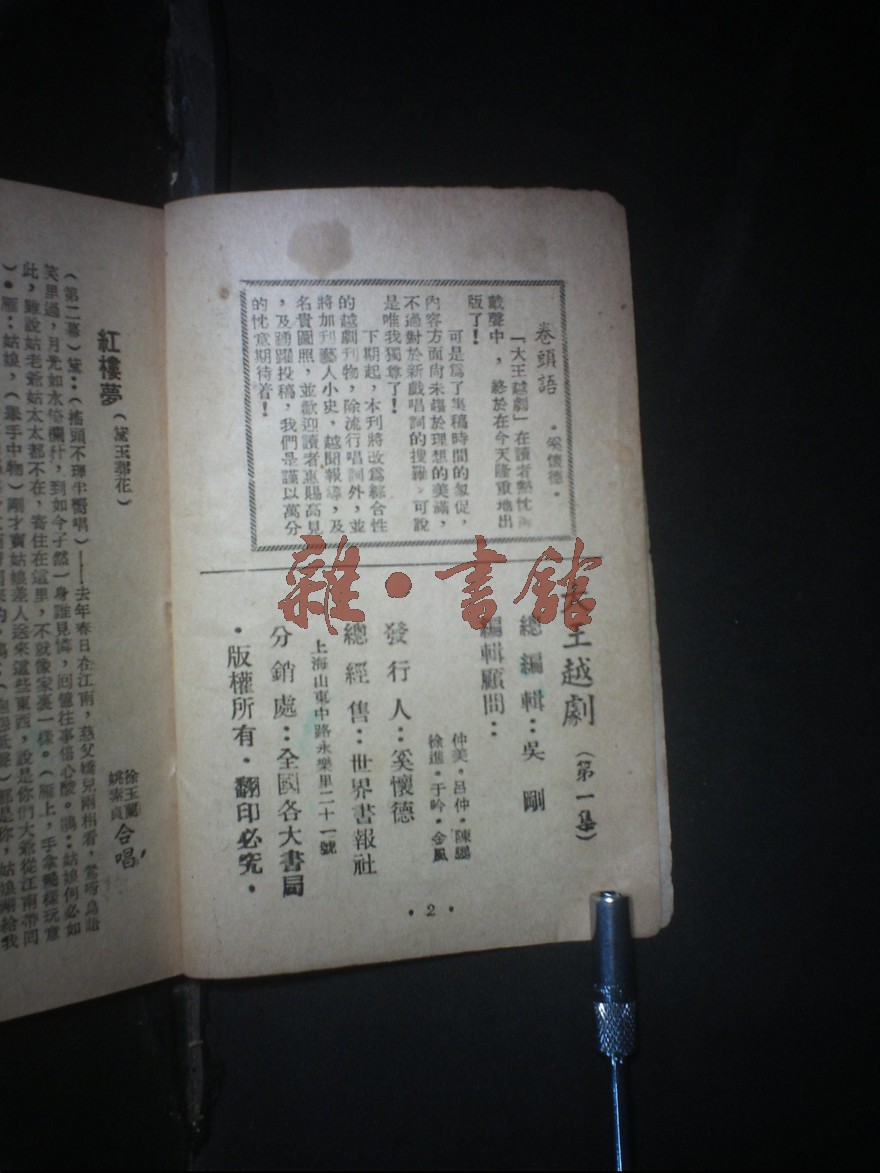 卷頭語 •奚懷德•
「大王越劇」在讀者熱忱
戴聲中，終於在今天隆重地出
版了！
可是為了集稿時間的匆促，
內容方面尚未趨於理想的美滿，
不過對於新戲唱詞的搜羅，可說
是唯我獨尊了！
下期起，本刊將改為綜合性
的越劇刊物，除流行唱詞外，並
將加刊藝人小史，越聞報導，及
名貴圖照，並歡迎讀者惠賜高見
，及踴躍投稿，我們是謹以萬分
的忱意期待着！
大王越劇（第一集）
總編輯：吳剛
編輯顧問：
仲美•呂仲•陳鵬
徐進•于吟•金風
發行人：奚懷德
總經售：世界書報社
上海山東中路永樂里二十一號
分銷處：全國各大書局
•版權所有•翻印必究•
•2•
紅樓夢（黛玉葬花） 徐玉蘭 姚素貞 合唱
（第二幕）黛：（搖頭不理半獨唱）——去年春日在江南，慈父嬌兒兩相看，鶯啼鳥語
笑里過，月光如水倚欄杆，到如今孑然一身誰見憐，回憶往事傷心酸。鵑：姑娘何必如
此，雖說姑老爺姑太太都不在，寄住在這里，不就像家裏一樣。（雁上，手拿幾樣玩意
）•雁：姑娘，（舉手中物）剛才寶姑娘差人送來這些東西，說是你們大爺從江南帶回
雜•書館